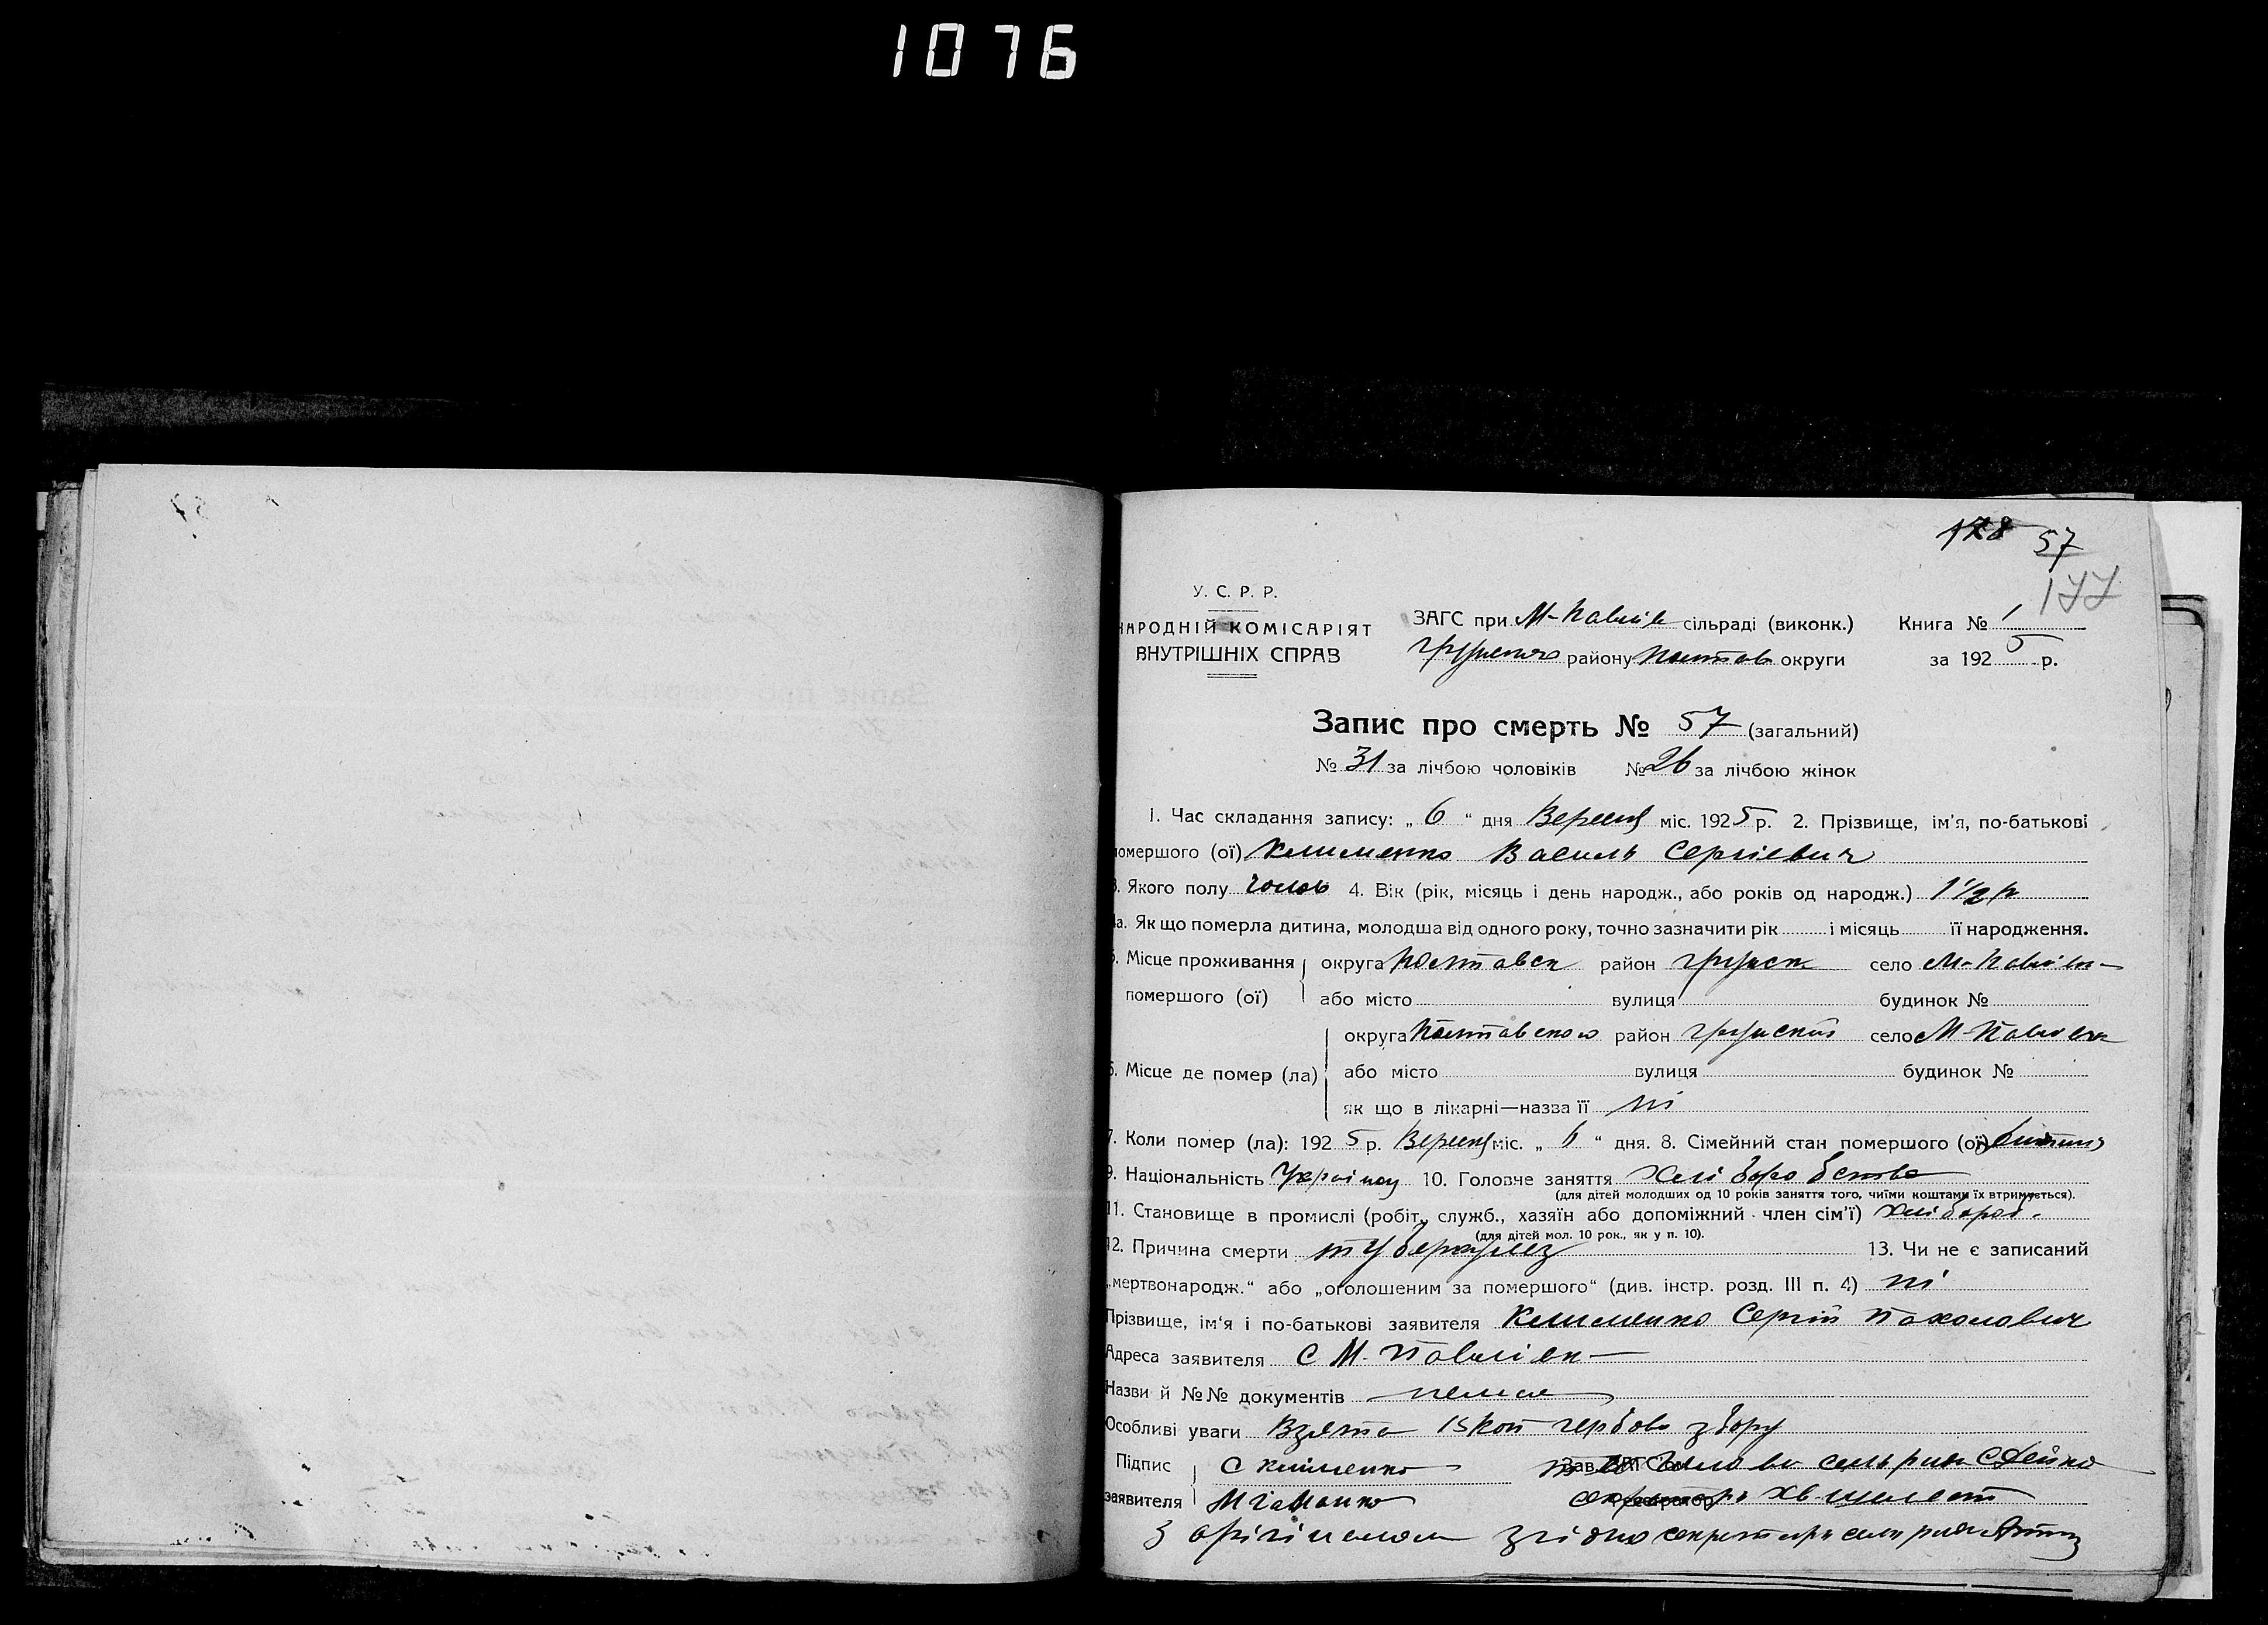 1076
178 57
177
У. С. Р. Р.
НАРОДНІЙ КОМІСАРІЯТ
ВНУТРІШНІХ СПРАВ
ЗАГС при М-Павлів сільраді (виконк.) Книга № 1
району Полтав округи за 1925 р.
Запис про смерть № 57 (загальний)
№ 31 за лічбою чоловіків № 26 за лічбою жінок
1. Час складання запису: „ 6 “ дня Вересня міс. 1925 р. 2. Прізвище, ім’я, по-батькові
помершого (ої) Клименко Василь Сергіевич
3. Якого полу чолов 4. Вік (рік, місяць і день народж., або років од народж.) 1 1/2 р
4а. Як що померла дитина, молодша від одного року, точно зазначити рік і місяць її народження.
5. Місце проживання округа Полтавск район грунск село М-Павлівк
помершого (ої) або місто вулиця будинок №
округа Полтавською район грунский село М-Павлівк
6. Місце де помер (ла) або місто вулиця будинок №
як що в лікарні—назва її ні
7. Коли помер (ла): 1925 р. Вересня міс. „ 6 “ дня. 8. Сімейний стан помершого (ої)
9. Національність 10. Головне заняття Хліборобство
(для дітей молодших од 10 років заняття того, чиїми коштами їх втримується).
11. Становище в промислі (робіт., служб., хазяїн або допоміжний член сім’ї) хлібороб.
(для дітей мол. 10 рок., як у п. 10).
12. Причина смерти туберкулез 13. Чи не є записаний
„мертвонародж.“ або „оголошеним за помершого“ (див. інстр. розд. III п. 4) ні
Прізвище, ім’я і по-батькові заявителя Клименко Сергій Пахомович
Адреса заявителя С М-Павлівк
Назви й №№ документів немае
Особливі уваги Взято 15 коп гербово збору
Підпис С Клименко Зав. ЗАГС’ом Голова сельради С Дейко
заявителя секретарь Хв. Шелест
З орігіналом згідно секретарь сельради